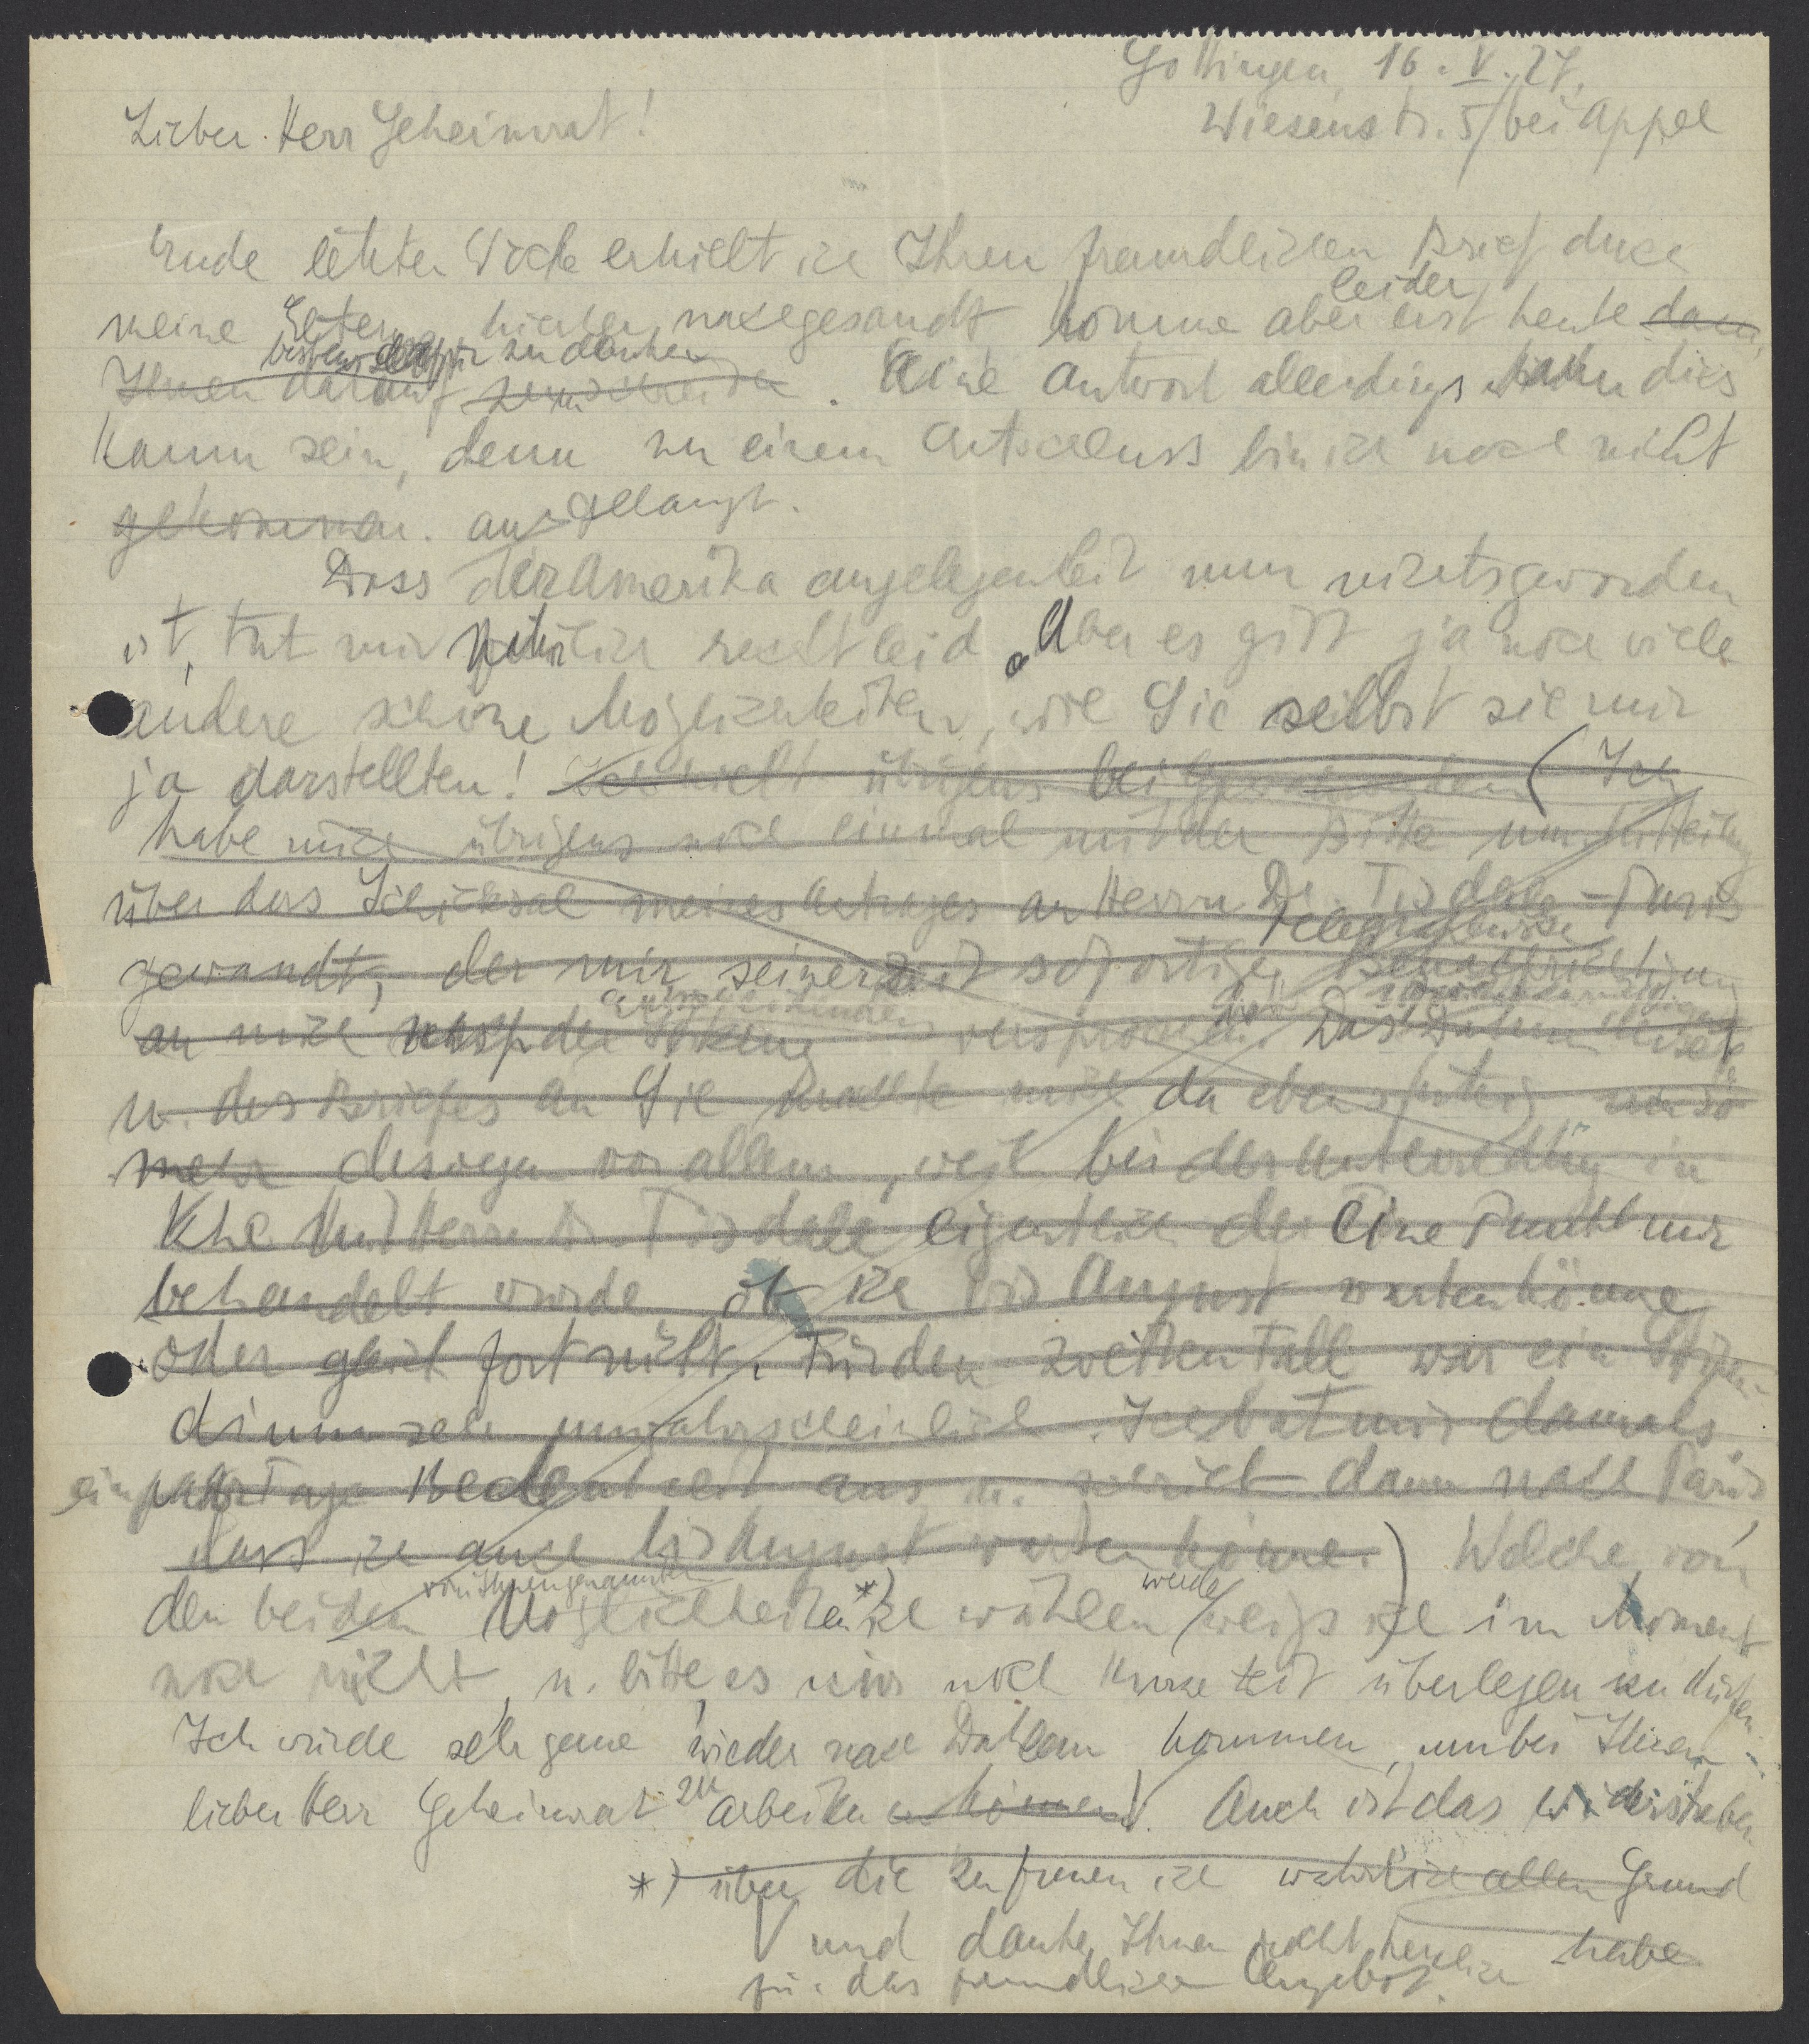 Göttingen, 16. V. 27.
Wiesenstr. 5/bei Appel
Lieber Herr Geheimrat!
Ende letzter Woche erhielt ich Ihren freundlichen Brief durch
leider
meine Eltern hierher nachgesandt, komme aber erst heute dazu,
bestens dafür zu danken
Ihnen darauf zu schreiben. Eine Antwort allerdings dies
kaum sein, denn zu einem Entschluss bin ich noch nicht
gekommen. gelangt.
Dass der Amerika angelegenheit nun nichts geworden
ist, tut mir natürlich recht leid. Aber es gibt ja noch viele
andere schöne Möglichkeiten, wie Sie selbst sie mir
ja darstellten! Ich übrigens bei (Ich
habe mich übrigens noch einmal mit der Bitte um Mitteilung
über das Schicksal meines Antrages an Herrn Dr. Tisdale - Paris
telegraphische
gewandt, der mir seinerzeit sofortige Benachrichtigung
an mich nach der versprochen. Das Datum dieses
u. des Briefes an Sie machte mich da eben stutzig, umso
mehr deswegen vor allem, weil bei der Unterredung in
Khe mit Herrn Dr. Tisdale eigentlich der eine Punkt nur
behandelt wurde ob ich bis August warten könne
oder gleich fort müßte. Für den zweiten Fall war ein Stipen-
dium sehr unwahrscheinlich. Ich bat mir damals
ein paar Tage Bedenkzeit aus u. schrieb dann nach Paris,
dass ich auch bis August warten könne.) Welche von
von Ihnen genannten werde
den beiden Möglichkeiten *) ich wählen weiß ich im Moment
noch nicht, u. bitte es mir noch kurze Zeit überlegen zu dürfen.
Ich würde sehr gerne wieder nach Dahlem kommen, um bei Ihnen
lieber Herr Geheimrat zu arbeiten können. Auch ist das
*) über die zu freuen ich wahrlich allen Grund
habe
und danke Ihnen recht herzlich
für das freundliche Angebot.